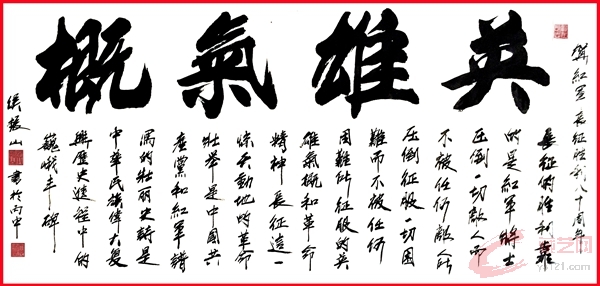 英雄氣概
紅軍長征勝利八十周年
長征的勝利靠
的是紅軍將士
压倒一切敵人而
不被任何敵人所
压倒征服一切困
難而不被任何
困難所征服的英
雄氣概和革命
精神長征這一
惊天動地的革命
壯舉是中國共
產黨和紅軍譜
寫的壯麗史詩是
中華民族偉大复
興歷史進程中的
巍峨丰碑
侯援山書於丙申
艺网
yt121.com